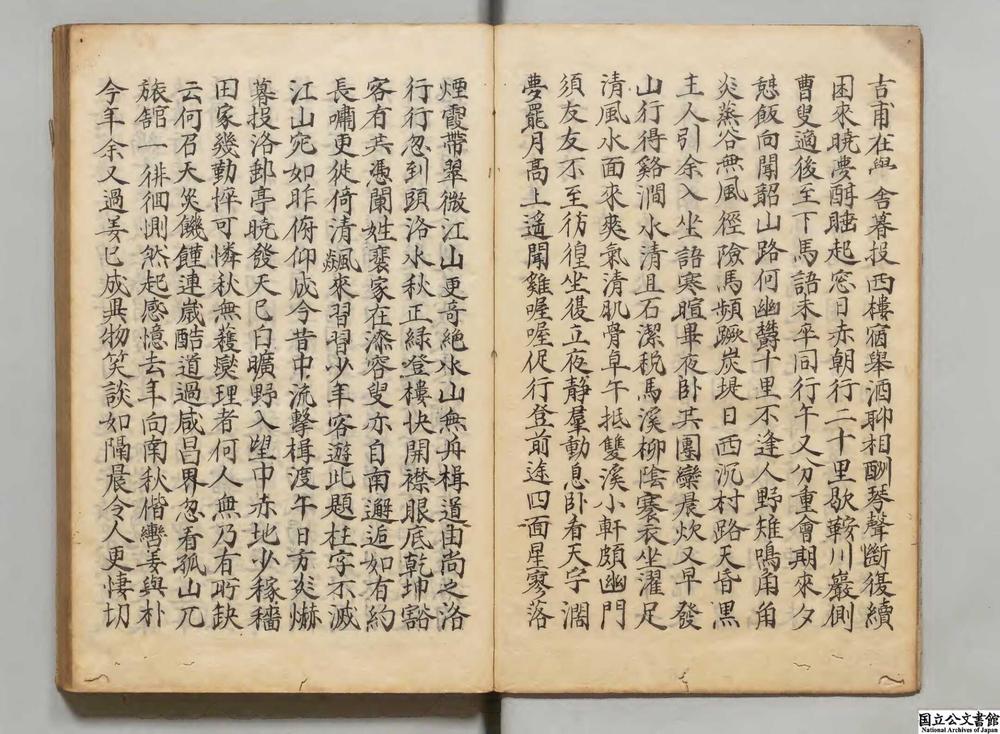 吉甫在學舍暮投西樓宿舉酒聊相酬琴聲斷復續
困來曉夢酣睡起窓日赤朝行二十里歇鞍川巖側
曹叟適後至下馬語未卒同行午又分重會期來夕
憩飯向聞韶山路何幽欝十里不逢人野雉鳴角角
炎蒸谷無風徑險馬頻蹶炭堤日西沉村路天昏黑
主人引余入坐語寒暄畢夜卧共團欒晨炊又早發
山行得谿澗水清且石潔稅馬溪柳陰褰衣坐濯足
清風水面來爽氣清肌骨卓午抵雙溪小軒頗幽門
須友友不至彷徨坐復立夜静羣動息卧看天宇濶
夢罷月高上遥聞雞喔喔促行登前途四面星寥落
煙霞帶翠微江山更奇絶水山無舟楫道由尚之洛
行行忽到頭洛水秋正緑登樓快開襟眼底乾坤豁
客有共憑闌姓裵家在漆容叟亦自南邂逅如有約
長嘯更徙倚清飇來習習少年客遊此題柱字不滅
江山宛如昨俯仰成今昔中流擊楫渡午日方炎爀
暮投洛郵亭曉發天已白曠野入望中赤地少稼穡
田家幾動悴可憐秋無蓷燮理者何人無乃有所缺
云何召天災饑饉連歲酷道過咸昌界忽看孤山兀
旅舘一徘徊惻然起感憶去年向南秋偕轡姜與朴
今年余又過姜已成異物笑談如隔晨令人更悽切
国立公文書館
National Archives of Japan